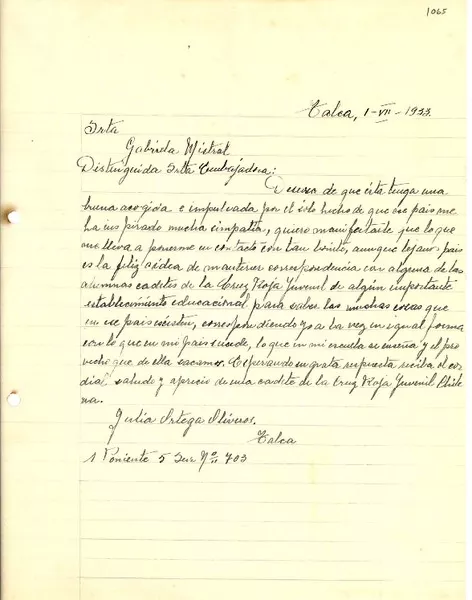 1065
Talca, 1-VII-1933.
Srta
Gabriela Mistral
Distinguida Srta Embajadora:
Deseosa de que ésta tenga una
buena acogida e impulsada por el solo hecho de que ese país me
ha inspirado mucha simpatía, quiero manifestarle que lo que
me lleva a ponerme en contacto con tan bonito, aunque lejano, país
es la feliz idea de mantener correspondencia con alguna de las
alumnas cadetes de la Cruz Roja Juvenil de algún importante
establecimiento educacional para saber las muchas cosas que
en ese país existen, correspondiendo yo a la vez en igual forma
con lo que en mi país sucede, lo que en mi escuela se enseña y el pro
vecho que de ella sacamos. Esperando su grata respuesta reciba el cor
dial saludo y aprecio de una cadete de la Cruz Roja Juvenil Chile
na.
Julia Ortega Oliveros.
Talca
1 Poniente 5 Sur Nº 703